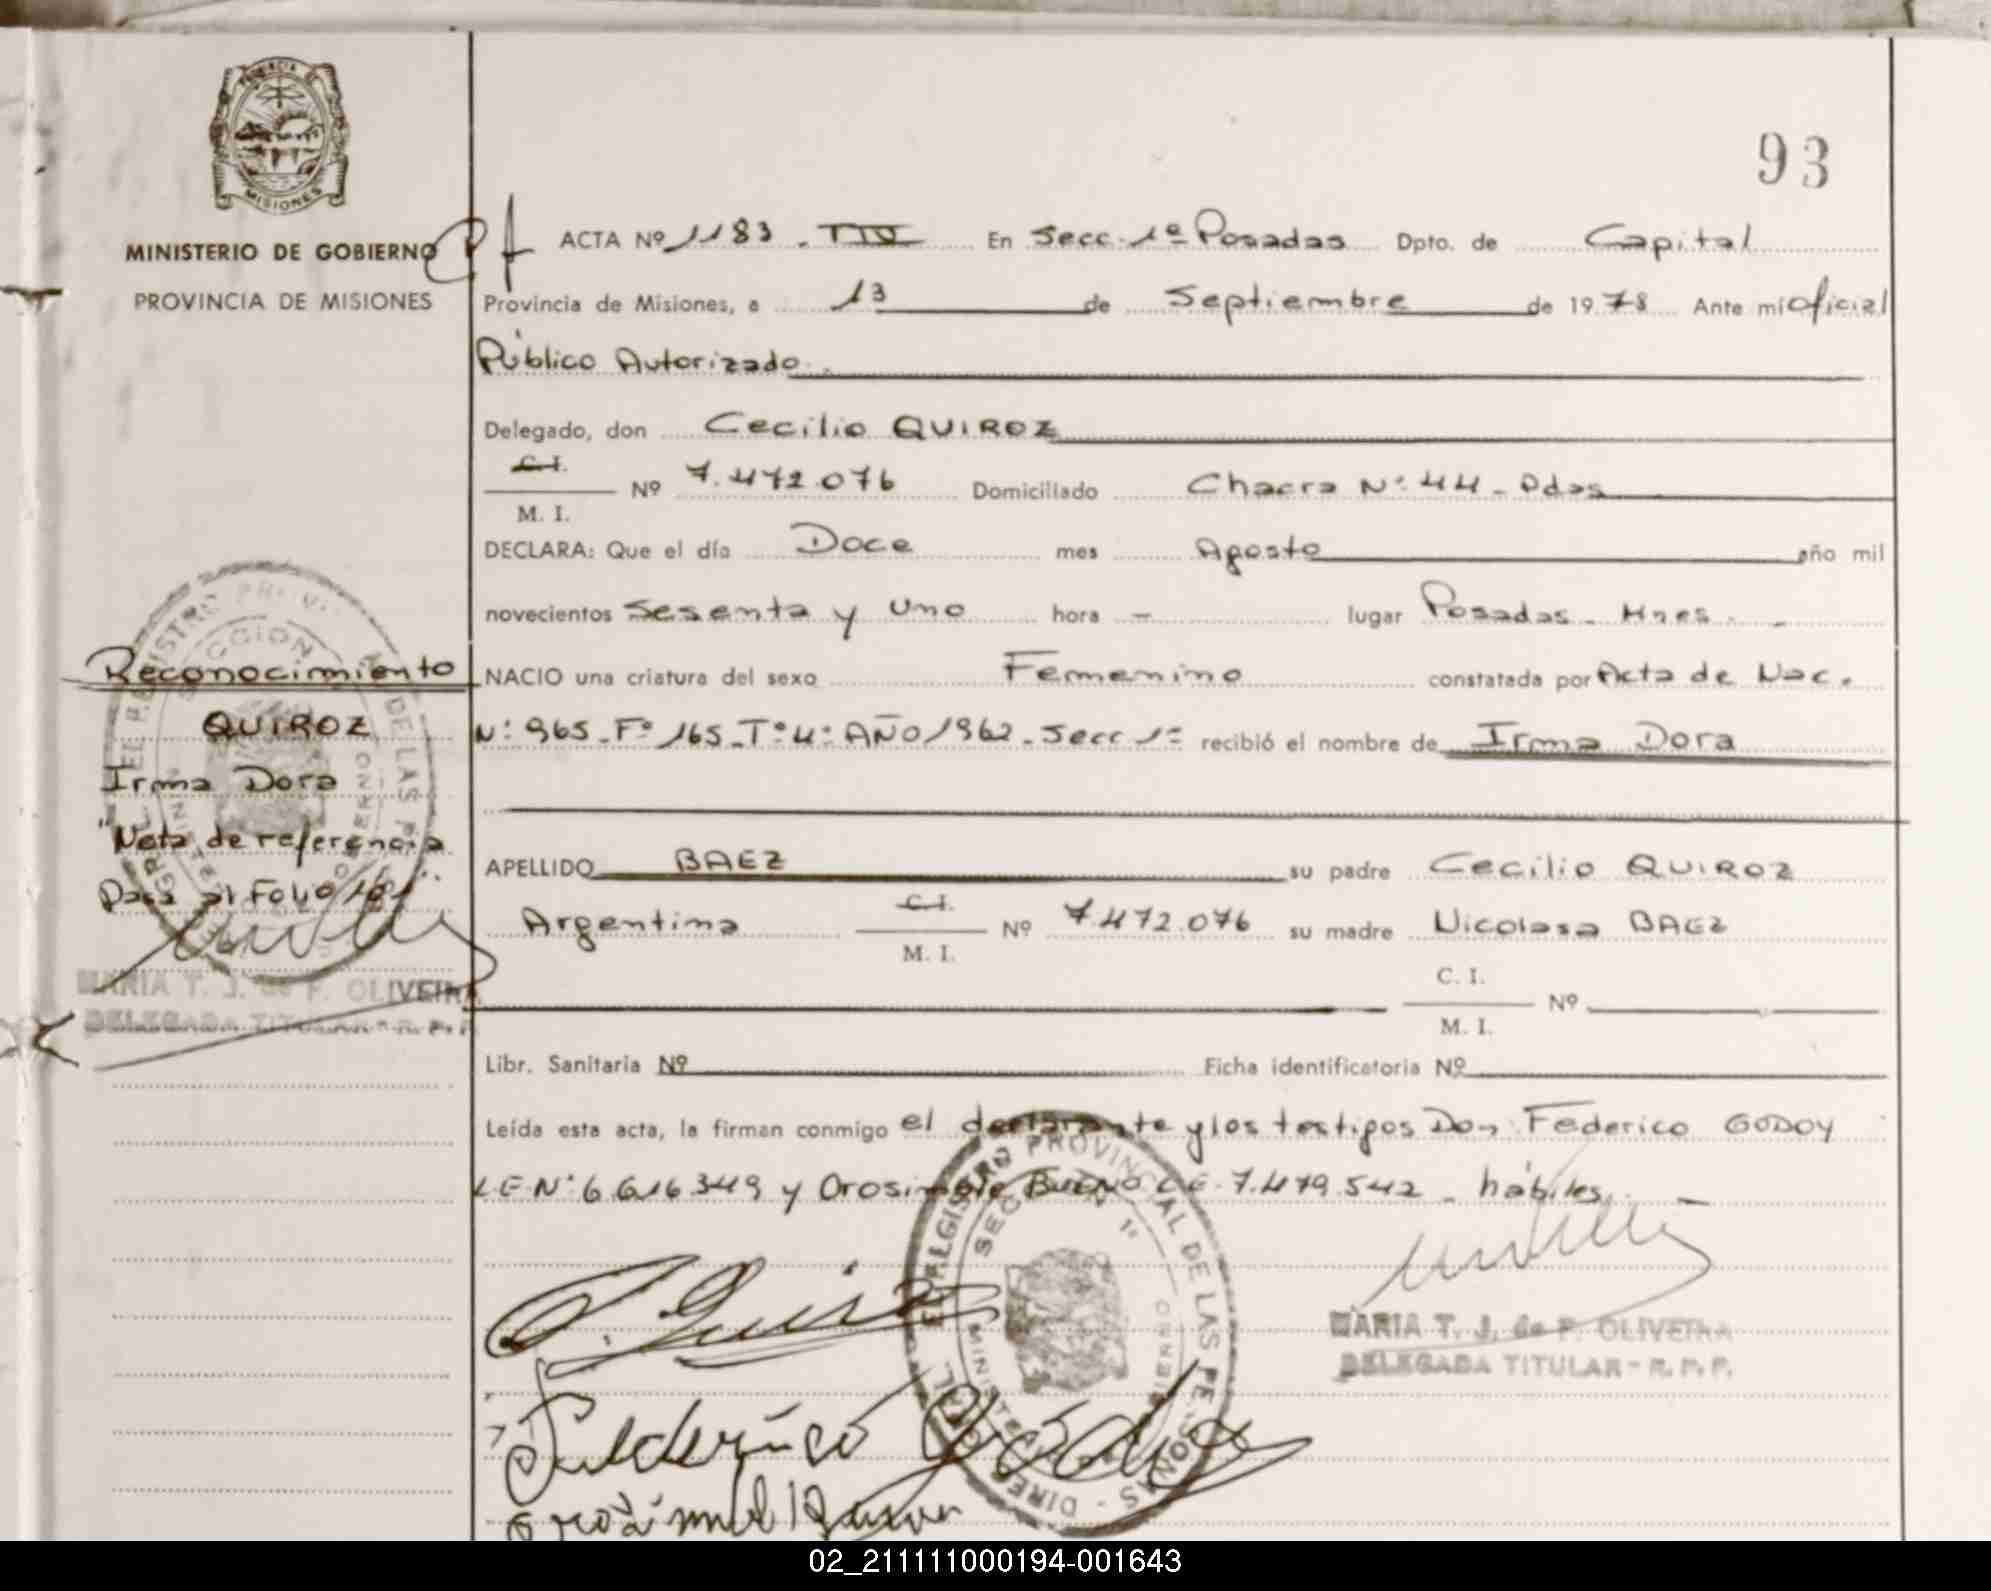 PROVINCIA DE
MISIONES
MINISTERIO DE GOBIERNO
PROVINCIA DE MISIONES
93
ACTA Nº 1183 - TIV En Secc. 1ª Posadas Dpto. de Capital
Provincia de Misiones, a 13 de Septiembre de 1978 Ante mi Oficial
Público Autorizado.
Delegado, don Cecilio QUIROZ
C. I.
M. I. Nº 7.472.076 Domiciliado Chacra Nº 44 - Pdas
DECLARA: Que el día Doce mes Agosto año mil
novecientos Sesenta y Uno hora - lugar Posadas - Mnes. -
NACIO una criatura del sexo Femenino constatada por Acta de Nac.
Nº 965 - Fº 165 - Tº 4º AÑO 1962 - Secc 1ª recibió el nombre de Irma Dora
APELLIDO BAEZ su padre Cecilio QUIROZ
Argentina C. I.
M. I. Nº 7.472.076 su madre Nicolasa BAEZ
C. I.
M. I. Nº
Libr. Sanitaria Nº Ficha identificatoria Nº
Leída esta acta, la firman conmigo el declarante y los testigos Don Federico GODOY
LE Nº 6.616.349 y Orosimbo BUENO LE 7.479.542 - hábiles. -
Reconocimiento
QUIROZ
Irma Dora
"Nota de referencia
Pasa al Folio
MARIA T. J. de P. OLIVEIRA
DELEGADA TITULAR - R. P. P.
MARIA T. J. de P. OLIVEIRA
DELEGADA TITULAR - R. P. P.
REGISTRO PROVINCIAL DE LAS PERSONAS
SECCION 1ª
Federico Godoy
02_211111000194-001643